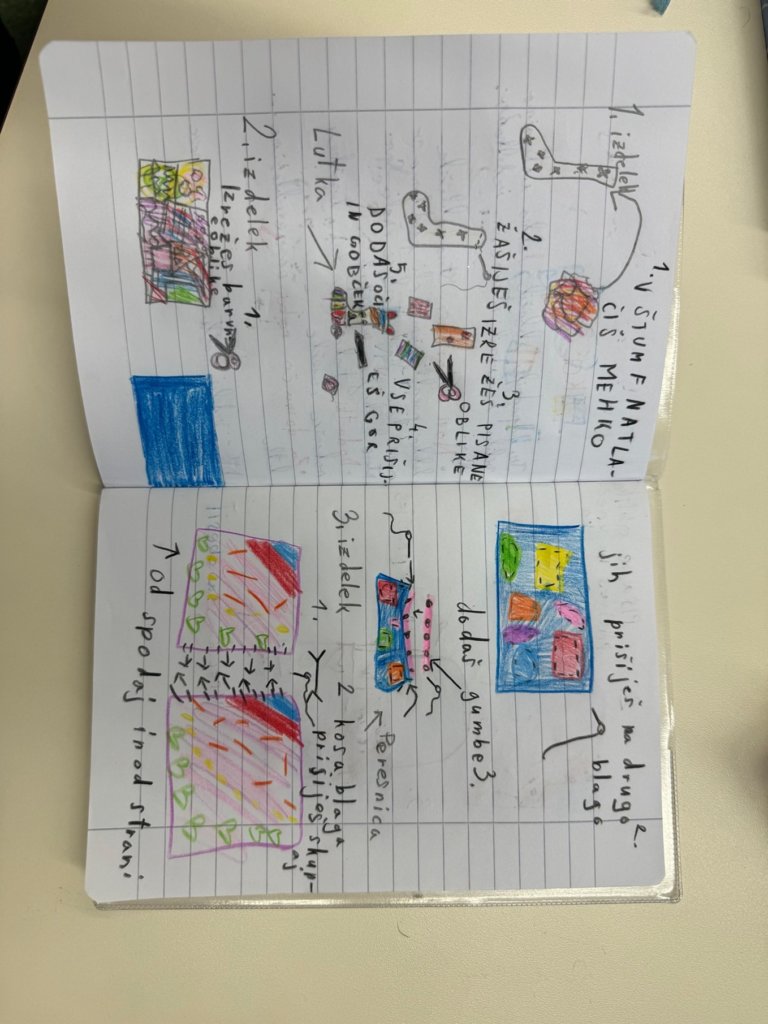 1. izdelek
1. V ŠTUMF NATLA-
ČIŠ MEHKO
2.
ZAŠIJEŠ
3.
IZREŽEŠ PISANE
OBLIKE
4.
VSE PRIŠIJ-
EŠ GOR
5.
DODAŠ OČI
IN GOBČEK
Lutka
2. izdelek
1.
Izrežeš barvne
oblike
2.
jih prišiješ na drugo
blago
dodaš gumbe 3.
Peresnica
3. izdelek
1.
2 kosa blaga
prišiješ skup-
aj
od spodaj in od strani